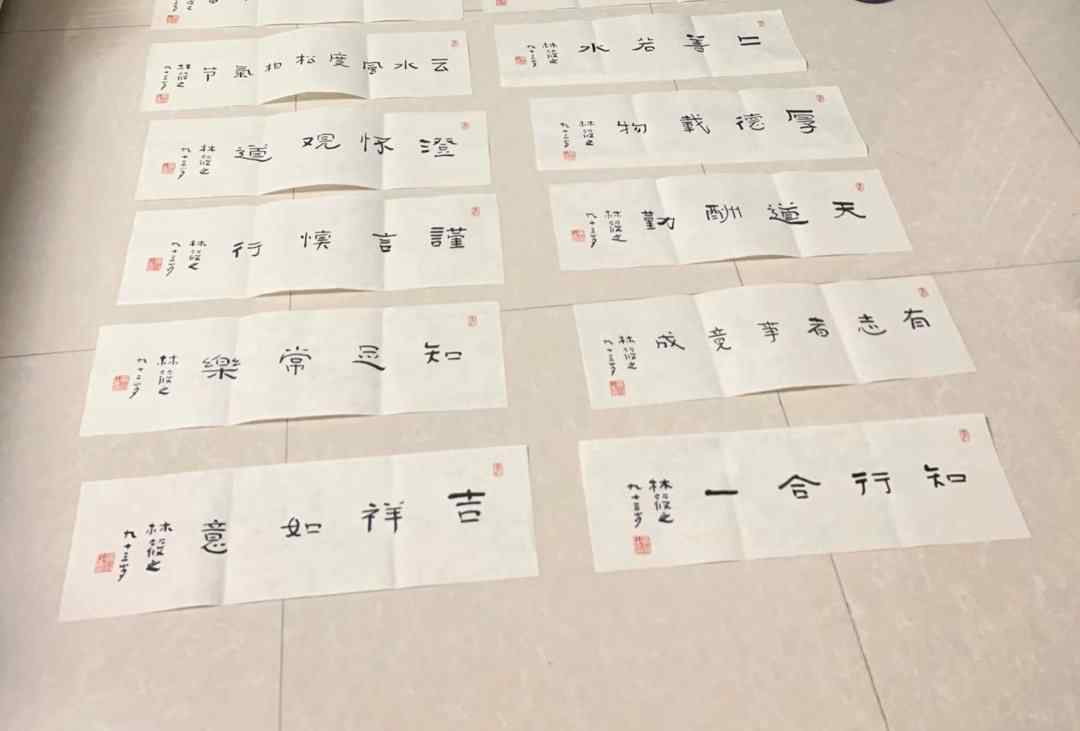 云水風度松柏氣节
林筱之
九十三岁
上善若水
林筱之
九十三岁
澄怀观道
林筱之
九十三岁
厚德載物
林筱之
九十三岁
謹言慎行
林筱之
九十三岁
天道酬勤
林筱之
九十三岁
知足常樂
林筱之
九十三岁
有志者事竟成
林筱之
九十三岁
吉祥如意
林筱之
九十三岁
知行合一
林筱之
九十三岁